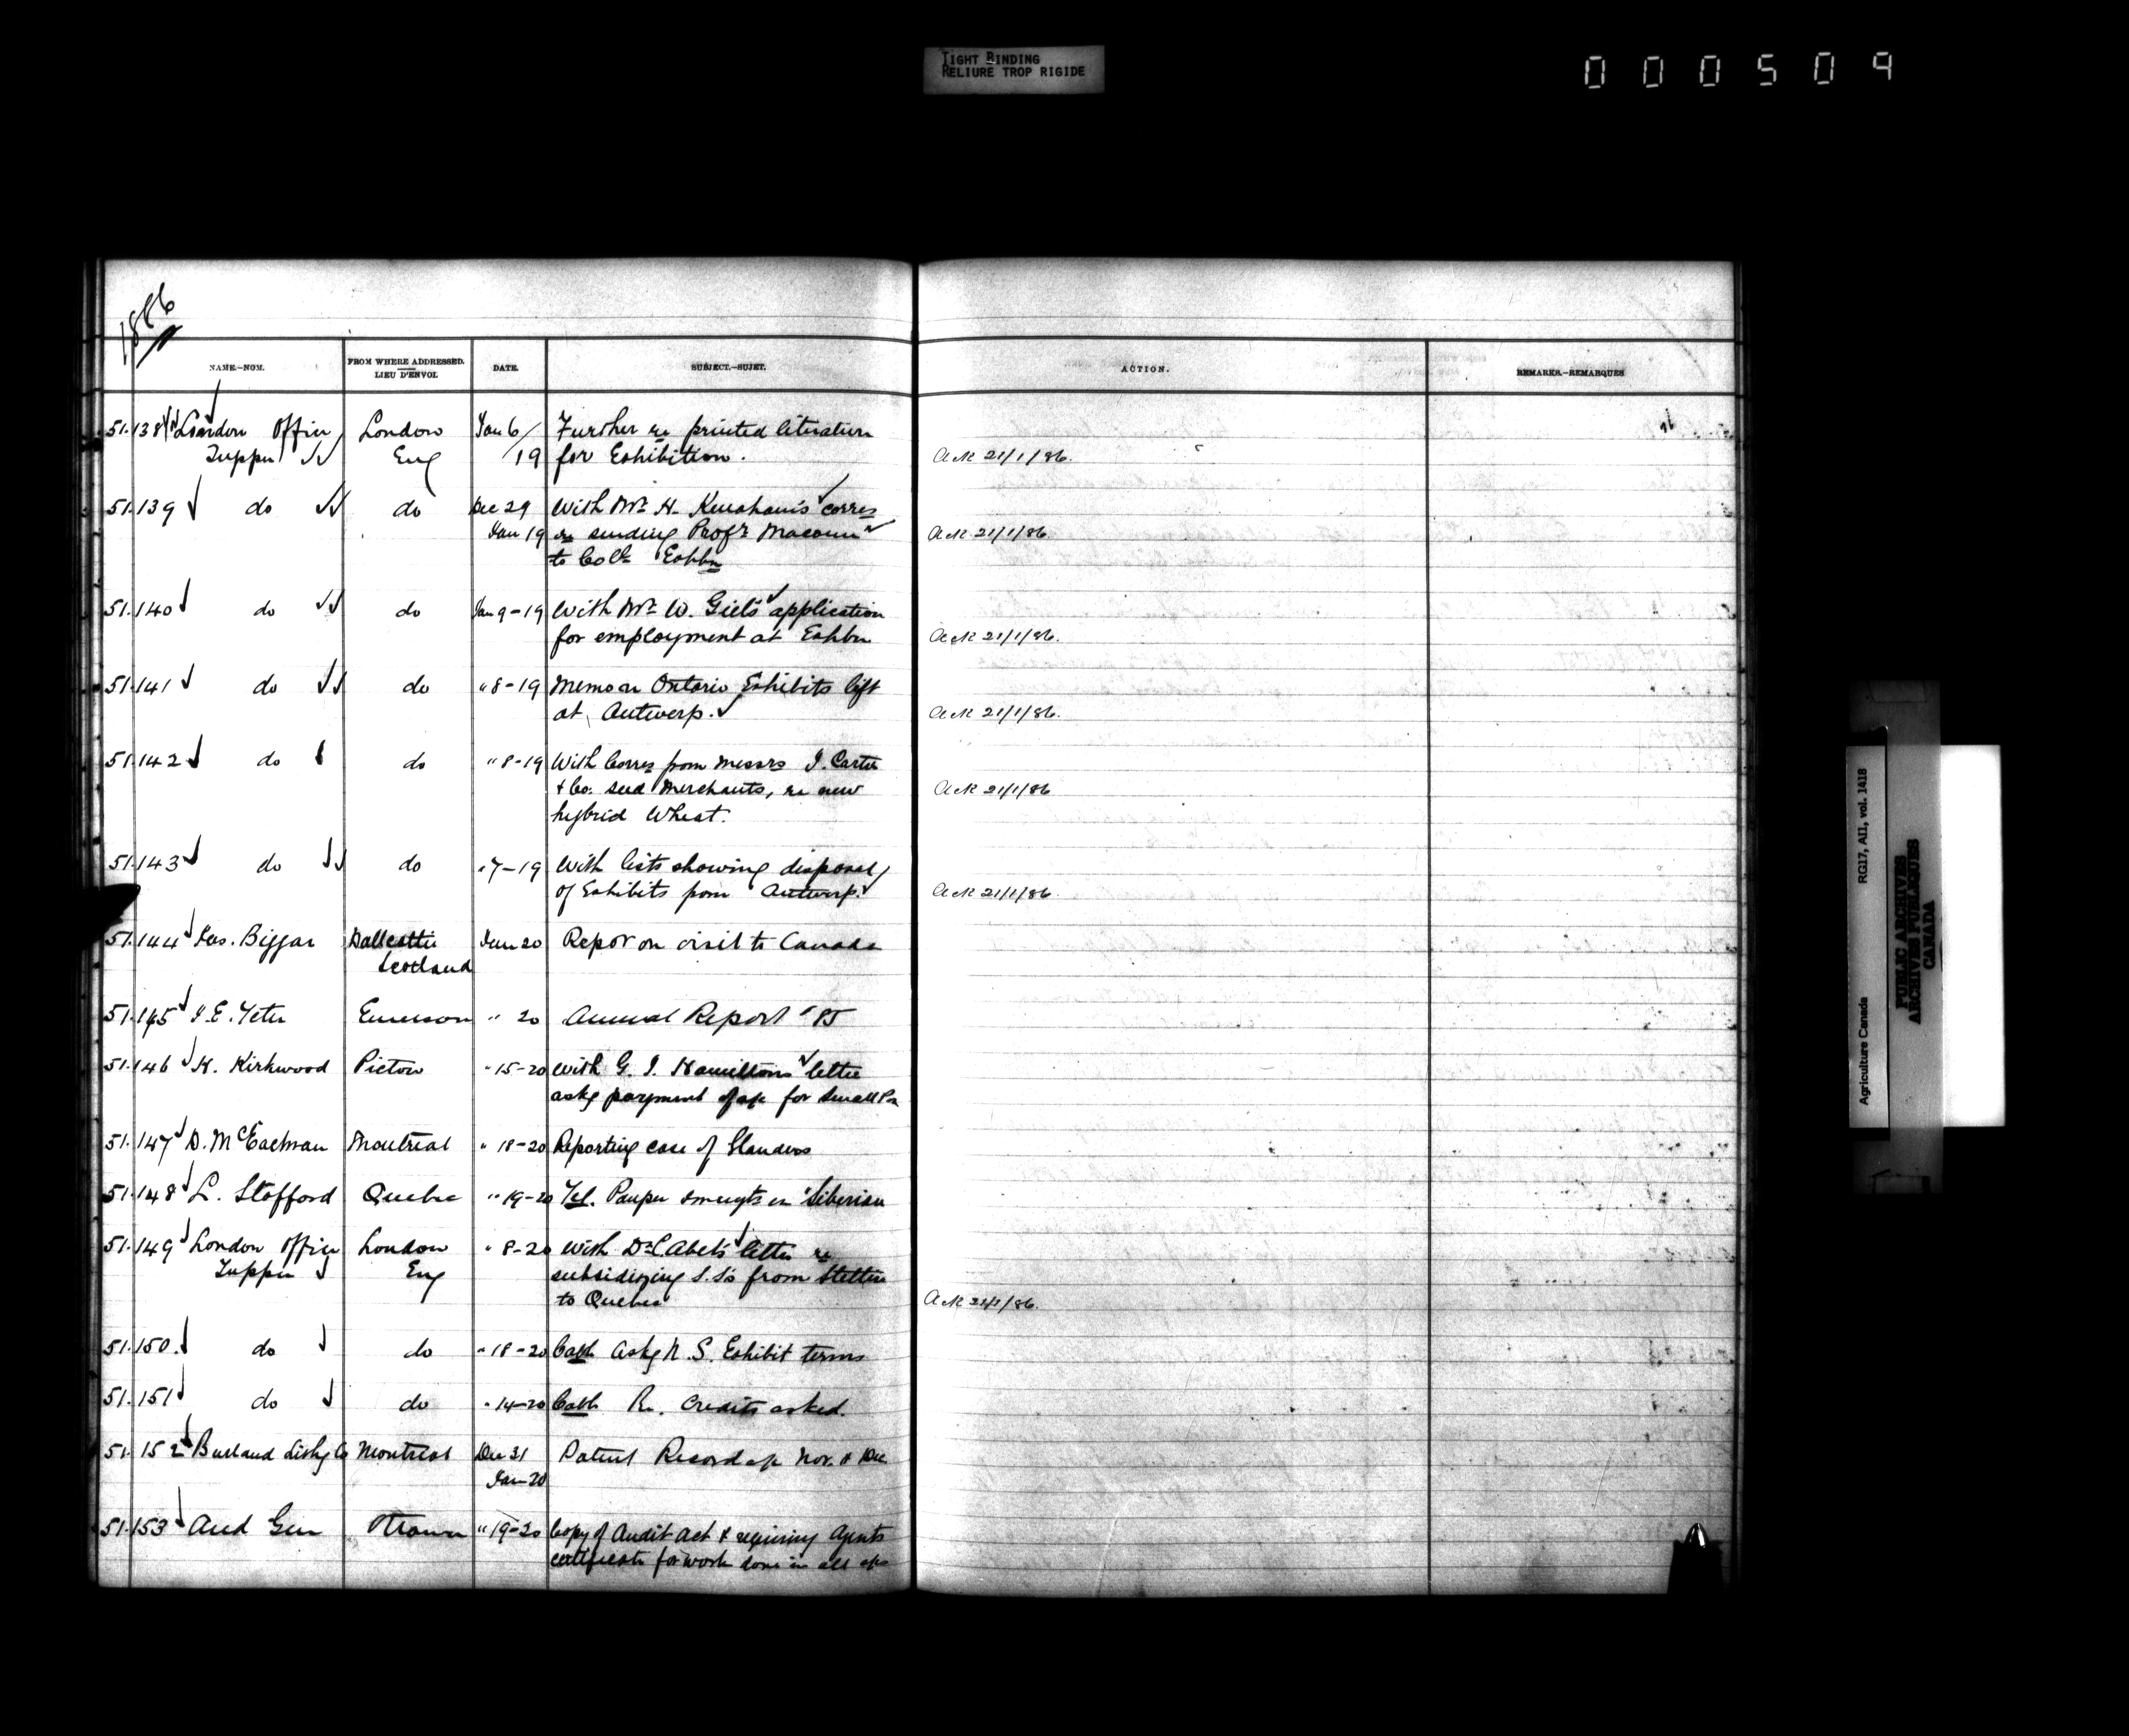 TIGHT BINDING
RELIURE TROP RIGIDE
000509
1886
NAME.–NOM.
FROM WHERE ADDRESSED.
LIEU D'ENVOI.
DATE.
SUBJECT.–SUJET.
ACTION.
REMARKS.–REMARQUES
51.138 London Office London Jan 6/ Further re printed literature
Tupper Eng 19 for Exhibition. Ack 21/1/86.
51.139 do do Dec 29 With Mr. H. corres
Jan 19 re sending Profr Macoun Ack 21/1/86.
to Coll Exhbn
51.140 do do Jan 9-19 With Mr. W. Giel's application
for employment at Exhbn Ack 21/1/86.
51.141 do do " 8-19 Memo re Ontario Exhibits left
at Antwerp. Ack 21/1/86.
51.142 do do " 8-19 With Corres from Messrs J. Carter
& Co. seed Merchants, re new Ack 21/1/86
hybrid Wheat.
51.143 do do " 7-19 With lists showing disposal
of Exhibits from Antwerp. Ack 21/1/86.
51.144 Jas. Biggar Dalbeattie Jan 20 Repor on visit to Canada
Scotland
51.145 J. E. Tetu Emerson " 20 Annual Report '85
51.146 H. Kirkwood Pictou " 15-20 With G. J. Hamiltons letter
askg payment of a/c for Small Px
51.147 D. McEachran Montreal " 18-20 Reporting case of Glanders
51.148 L. Stafford Quebec " 19-20 Tel. Pauper emigts on "Siberian
51.149 London Office London " 8-20 With Dr. C. Abel's letter re
Tupper Eng subsidizing S.S's from Stettin
to Quebec Ack 21/1/86.
51.150. do do " 18-20 Cable Askg N.S. Exhibit terms
51.151 do do " 14-20 Cable Re. Credits asked.
51.152 Burland Lithg Co Montreal Dec 31 Patent Record a/c Nov. & Dec
Jan 20
51.153 Aud Gen Ottawa " 19-20 Copy of Audit Act & requiring Agents
certificate for work done in all a/cs
Agriculture Canada RG17, AII, vol. 1418
PUBLIC ARCHIVES
ARCHIVES PUBLIQUES
CANADA